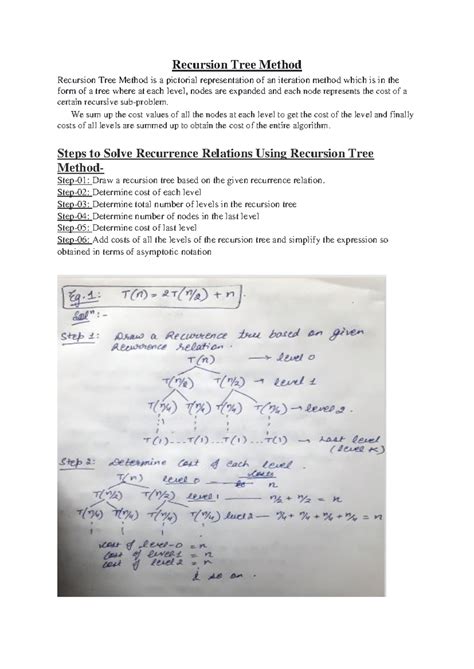 Recursion Tree Method
Recursion Tree Method is a pictorial representation of an iteration method which is in the
form of a tree where at each level, nodes are expanded and each node represents the cost of a
certain recursive sub-problem.
We sum up the cost values of all the nodes at each level to get the cost of the level and finally
costs of all levels are summed up to obtain the cost of the entire algorithm.
Steps to Solve Recurrence Relations Using Recursion Tree
Method-
Step-01: Draw a recursion tree based on the given recurrence relation.
Step-02: Determine cost of each level
Step-03: Determine total number of levels in the recursion tree
Step-04: Determine number of nodes in the last level
Step-05: Determine cost of last level
Step-06: Add costs of all the levels of the recursion tree and simplify the expression so
obtained in terms of asymptotic notation
Eg.1: T(n) = 2T(n/2) + n
Solⁿ :-
Step 1: Draw a Recurrence tree based on given
Recurrence relation.
T(n) → level 0
T(n/2) T(n/2) → level 1
T(n/4) T(n/4) T(n/4) T(n/4) → level 2
T(1) ... T(1) ... T(1) ... T(1) → Last level
(level k)
Step 2: Determine cost of each level.
T(n) level 0 — n
T(n/2) T(n/2) level 1 — n/2 + n/2 = n
T(n/4) T(n/4) T(n/4) T(n/4) level 2 — n/4 + n/4 + n/4 + n/4 = n
cost of level-0 = n
cost of level 1 = n
cost of level 2 = n
& so on.